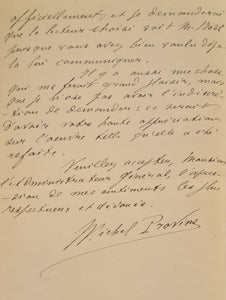 officiellement, et je demanderai
que le lecteur choisi soit M.
puisque vous avez bien voulu déjà
la lui communiquer.
Il y a aussi une chose
qui me ferait grand plaisir, mais
que je n'ose pas avoir l'indiscré-
-tion de demander : ce serait
d'avoir votre haute appréciation
sur l'oeuvre telle qu'elle a été
refaite.
Veuillez accepter, Monsieur
l'Administrateur Général, l'expres-
-sion de mes sentiments les plus
respectueux et dévoués.
Michel Provins